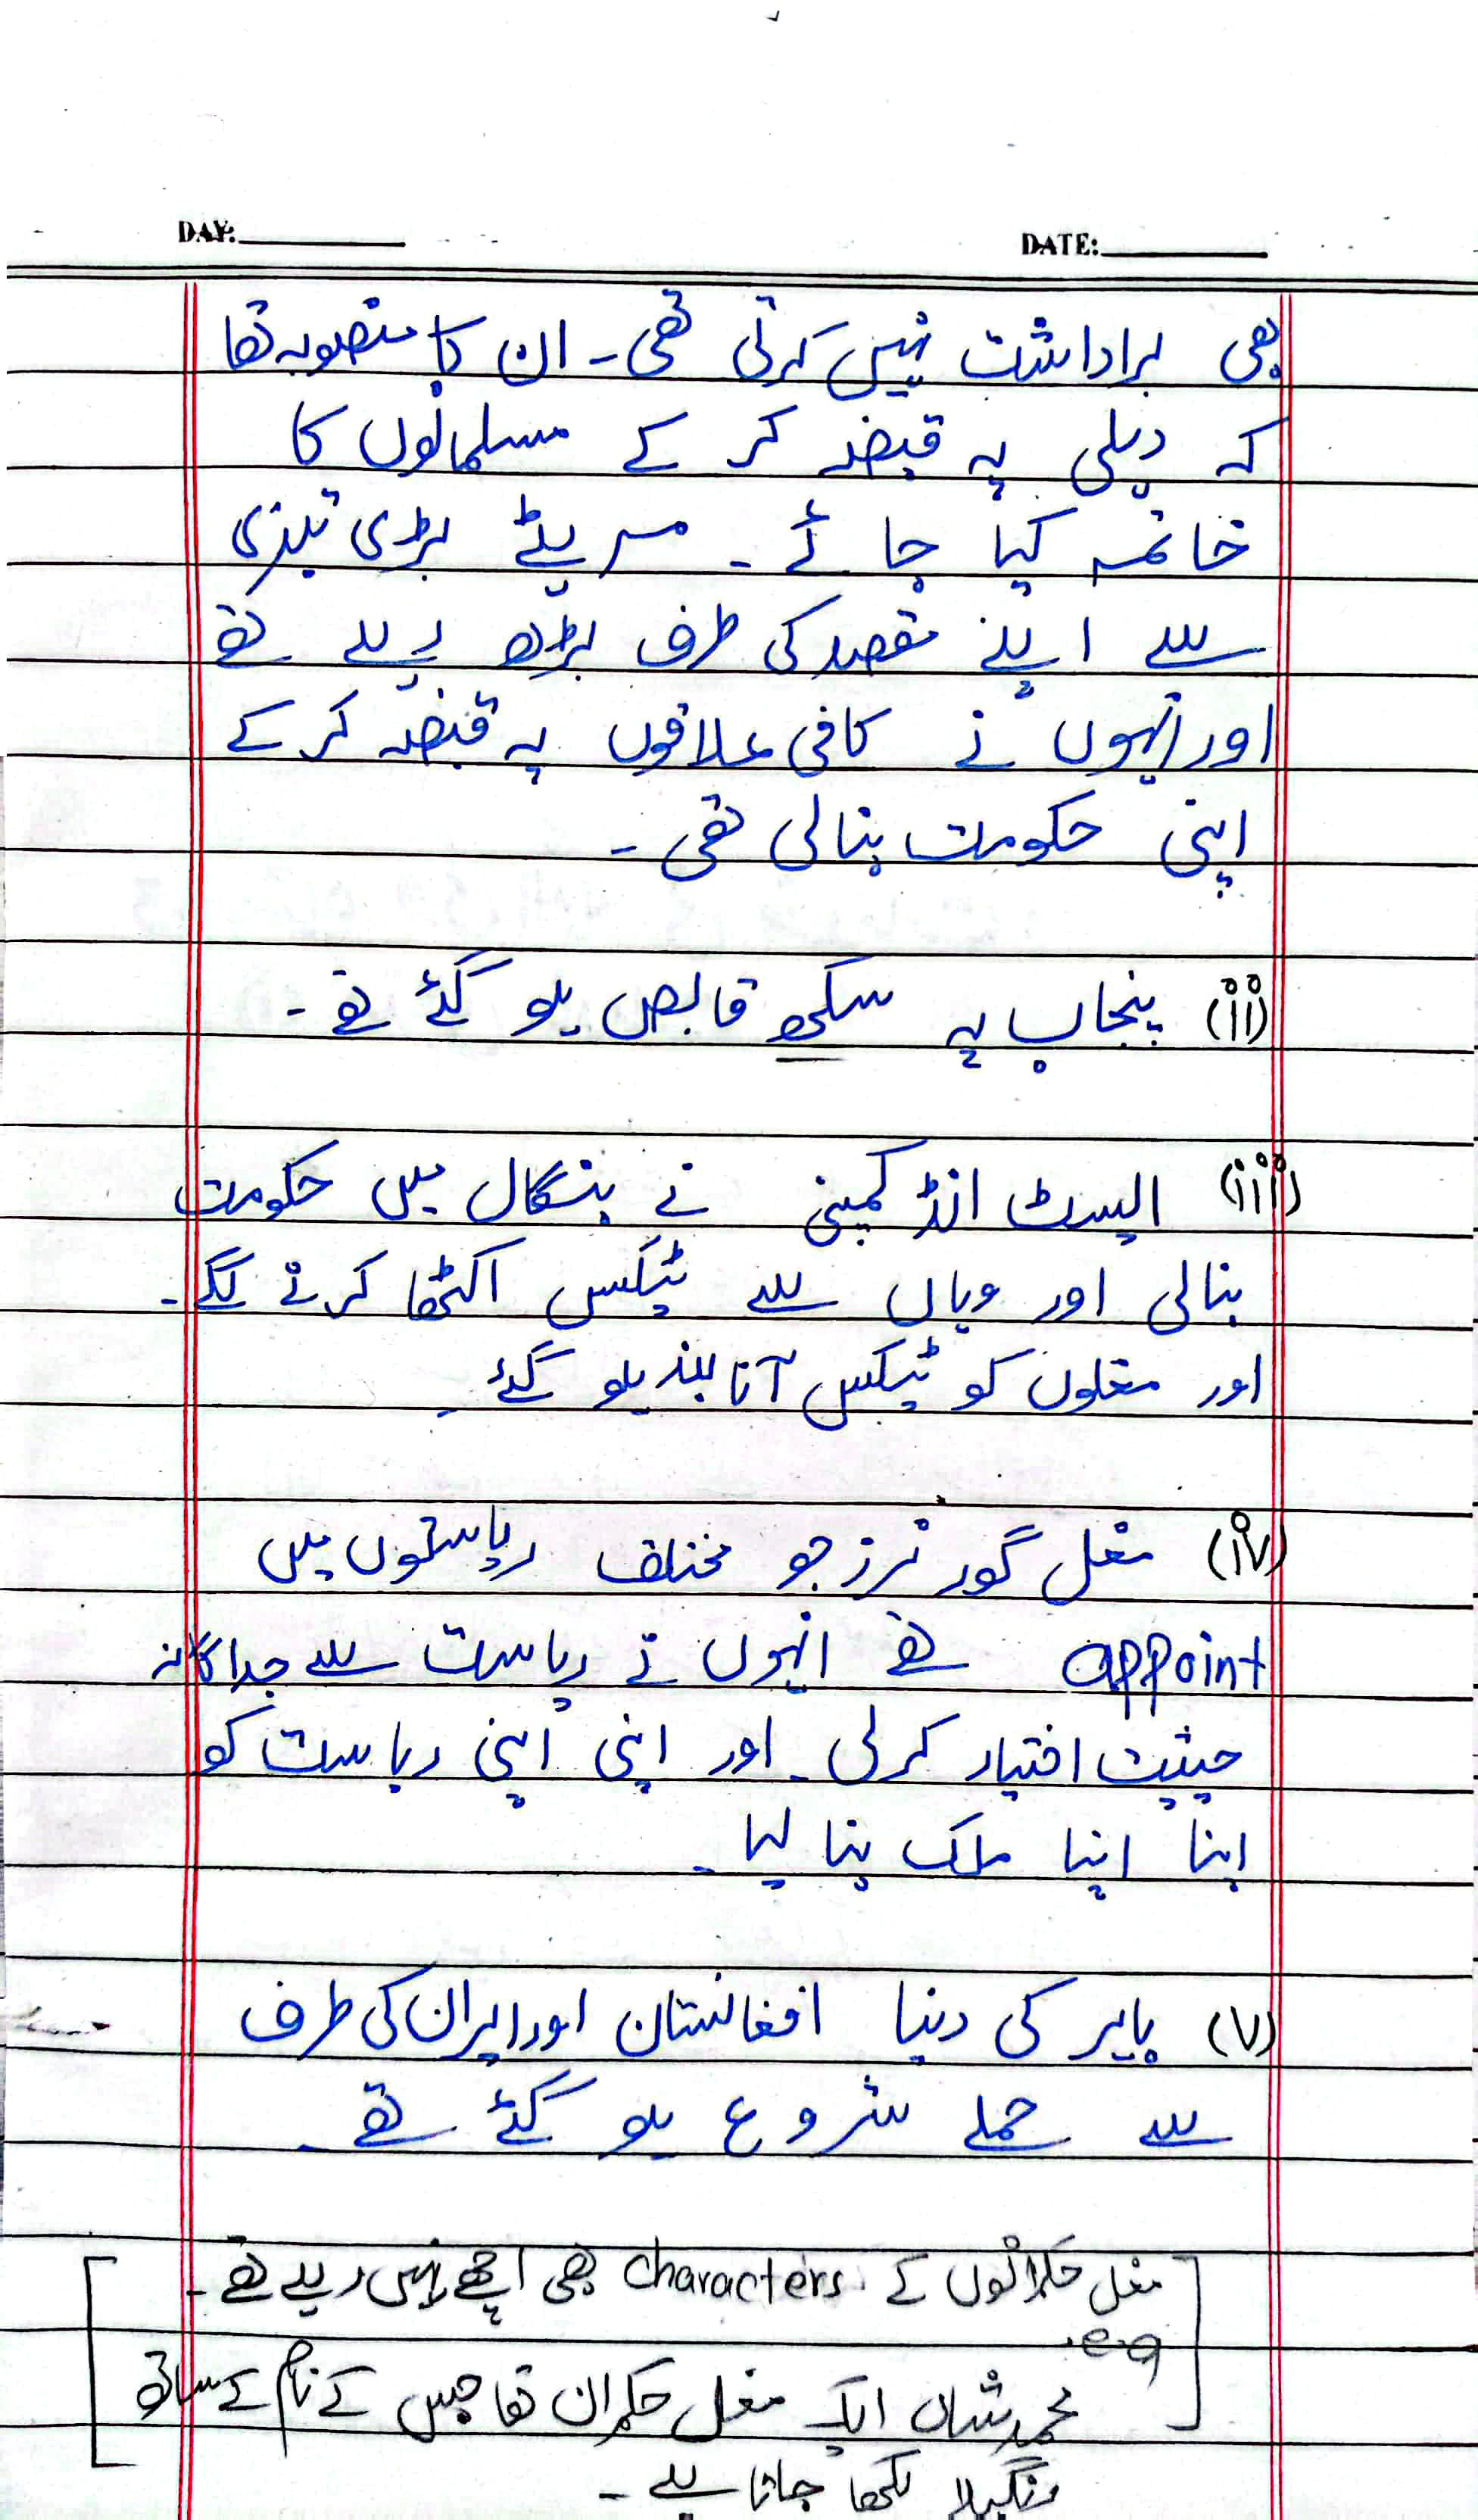 DAY: DATE:
بھی براداشت نہیں کرتی تھی۔ ان کا منصوبہ تھا
کہ دہلی پہ قبضہ کر کے مسلمانوں کا
خاتمہ کیا جائے۔ مرہٹے بڑی تیزی
سے اپنے مقصد کی طرف بڑھ رہے تھے
اور انہوں نے کافی علاقوں پہ قبضہ کر کے
اپنی حکومت بنالی تھی۔
(ii) پنجاب پہ سکھ قابض ہو گئے تھے۔
(iii) ایسٹ انڈ کمپنی نے بنگال میں حکومت
بنالی اور وہاں سے ٹیکس اکٹھا کرنے لگے۔
اور مغلوں کو ٹیکس آنا بند ہو گئے۔
(iv) مغل گورنرز جو مختلف ریاستوں میں
appoint تھے انہوں نے ریاست سے جداگانہ
حیثیت اختیار کرلی۔ اور اپنی اپنی ریاست کو
اپنا اپنا ملک بنا لیا۔
(v) باہر کی دنیا افغانستان اور ایران کی طرف
سے حملے شروع ہو گئے تھے۔
مغل حکمرانوں کے characters بھی اچھے نہیں رہے تھے۔
e.g.
محمد شاہ ایک مغل حکمران تھا جس کے نام کے ساتھ
رنگیلا لکھا جاتا ہے۔